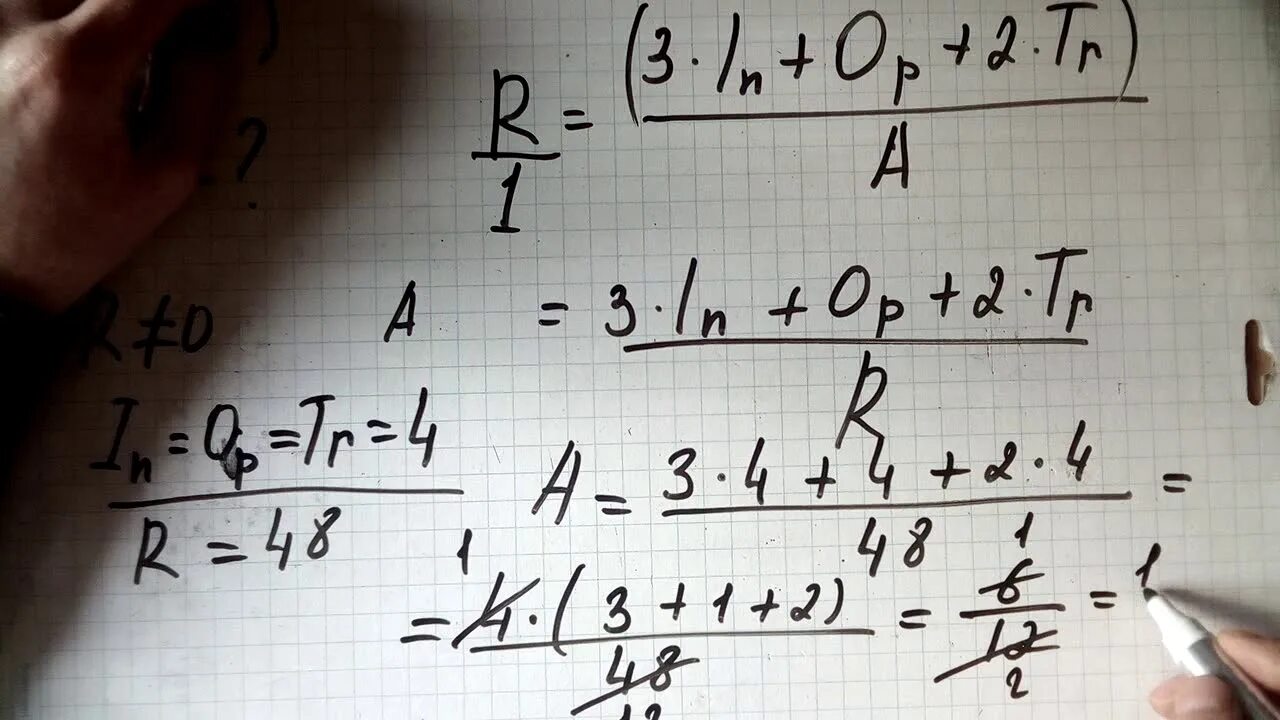 ?
R/1 = (3·In + Op + 2·Tr)/A
R ≠ 0
A = (3·In + Op + 2·Tr)/R
In = Op = Tr = 4
R = 48
A = (3·4 + 4 + 2·4)/48 =
1 1 1
= 4·(3 + 1 + 2)/48 = 6/12 =
12 2